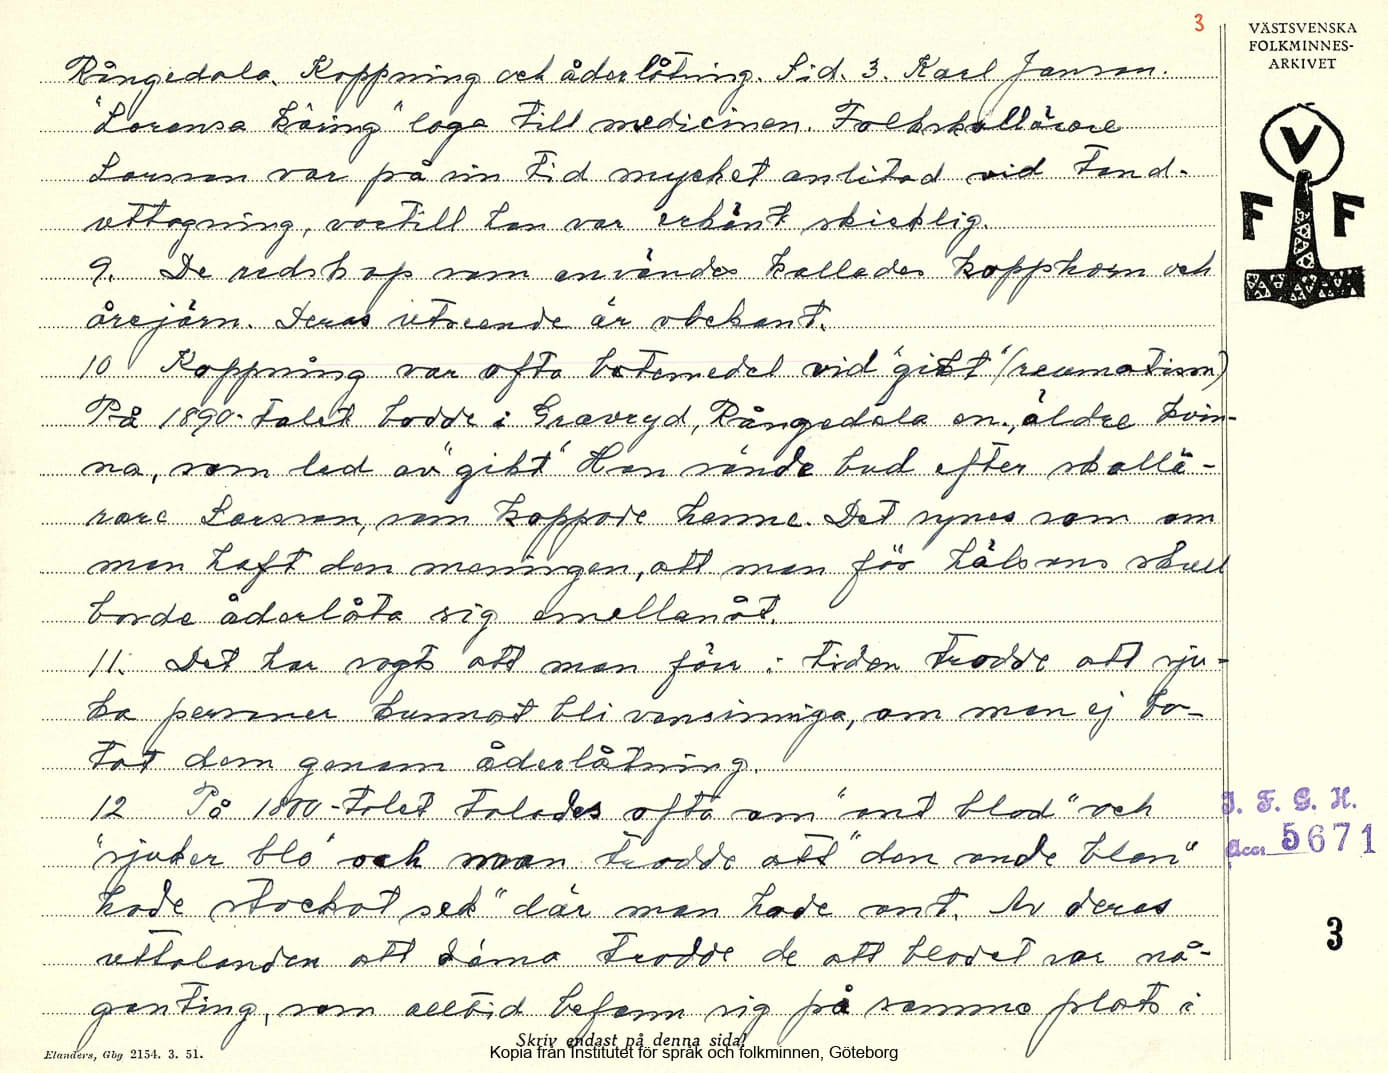 3
VÄSTSVENSKA
FOLKMINNES-
ARKIVET
Rångedala. Koppning och åderlåtning. Sid. 3. Karl Janson.
"Lorensa käring" laga till medicinen. Folkskollärare
Larsson var på sin tid mycket anlitad vid tand-
uttagning, vartill han var erkänt skicklig.
9. De redskap som användes kallades kopphorn och
årejärn. Deras utseende är obekant.
10 Koppning var ofta botemedel vid "gikt" (reumatism)
På 1890-talet bodde i Grovryd, Rångedala en äldre kvin-
na, som led av "gikt" Hon sände bud efter skollä-
rare Larsson, som koppade henne. Det synes som om
man haft den meningen, att man för hälsans skull
borde åderlåta sig emellanåt.
11. Det har sagts att man förr i tiden trodde att sju-
ka personer kunnat bli vansinniga, om man ej bo-
tat dem genom åderlåtning.
12 På 1800-talet talades ofta om "ont blod" och
"sjuker blo" och man trodde att "den onde blon"
hade stockat sek" där man hade ont. Av deras
uttalanden att döma trodde de att blodet var nå-
gonting, som alltid befann sig på samma plats i
V
F F
I. F. G. H.
Acc. 5671
3
Skriv endast på denna sida!
Elanders, Gbg 2154. 3. 51.
Kopia från Institutet för språk och folkminnen, Göteborg